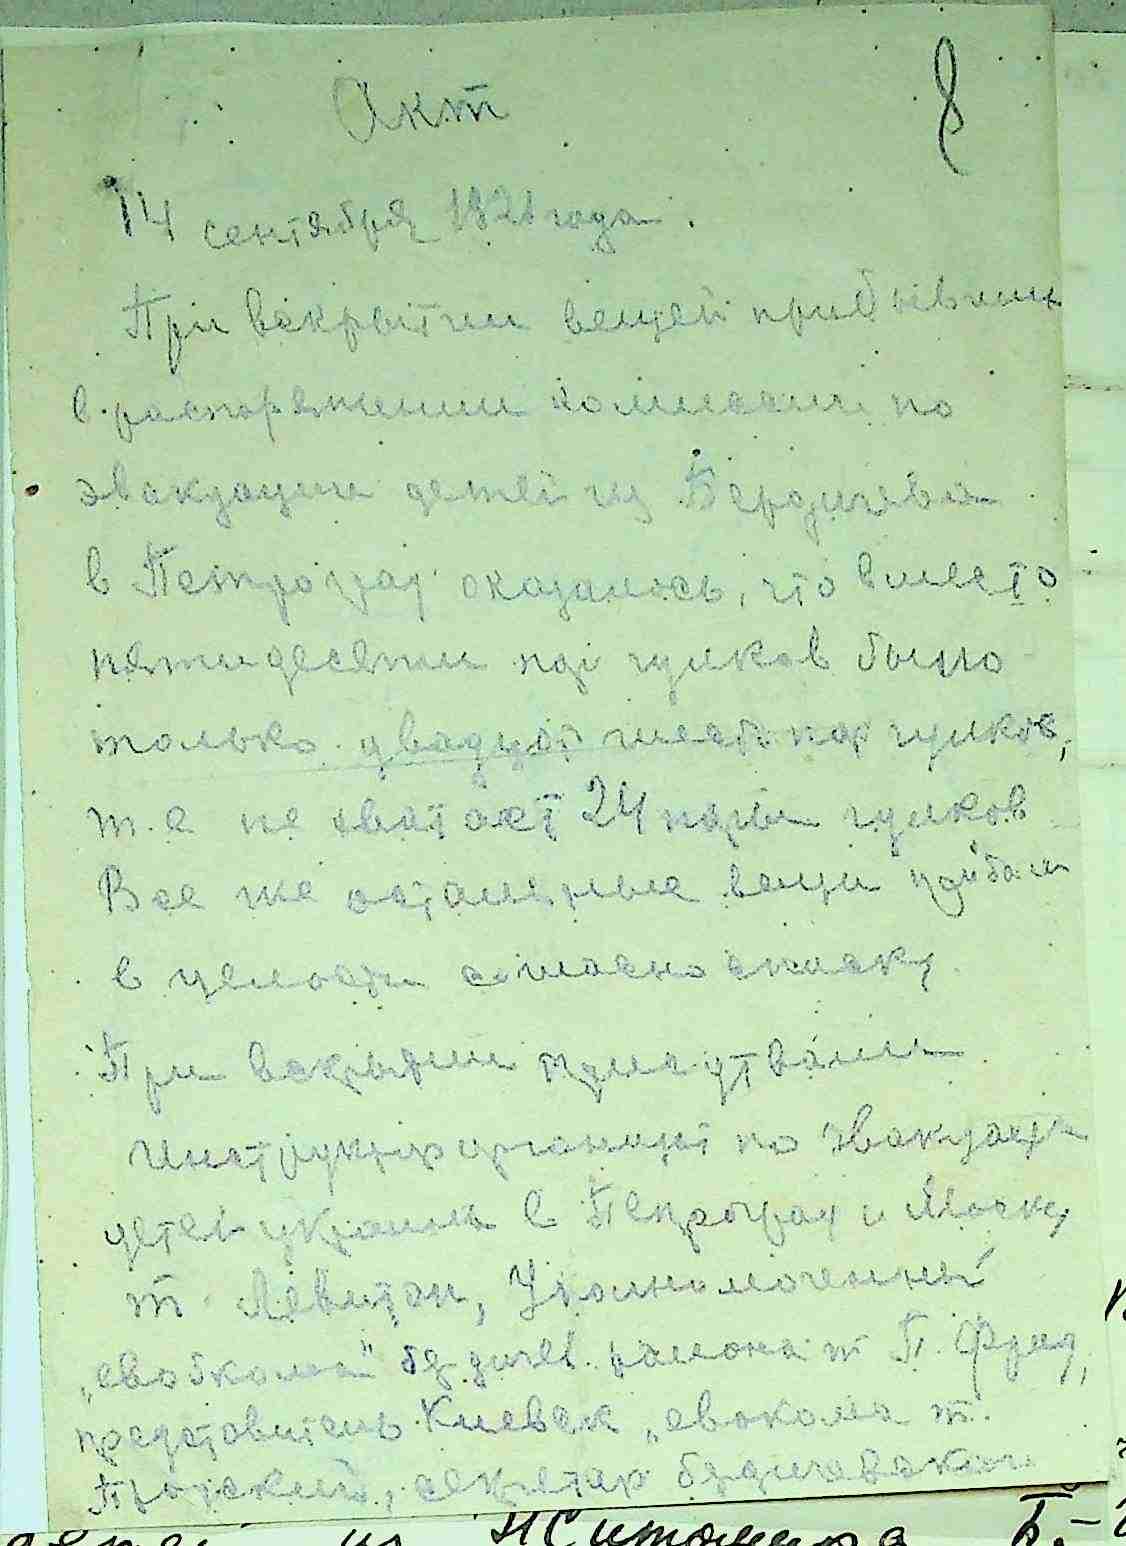 8
Акт
14 сентября 1921 года.
При вскрытии вещей прибывших
в распоряжении комиссии по
эвакуации детей из Бердичева
в Петроград оказалось, что вместо
пятидесяти пар чулков было
только двадцать шесть пар чулков,
т.е не хватает 24 пары чулков
Все же остальные вещи
в целости согласно списку
При вскрытии присутвали
Инструктор организ по эвакуации
детей украины в Петроград и Москву
т Левитан, Уполномоченный
„евобкома" бердичев. района т П. Фрид,
представитель Киевск „евокома т.
Тройский, секретар бердичевском
из Житомира Б.-